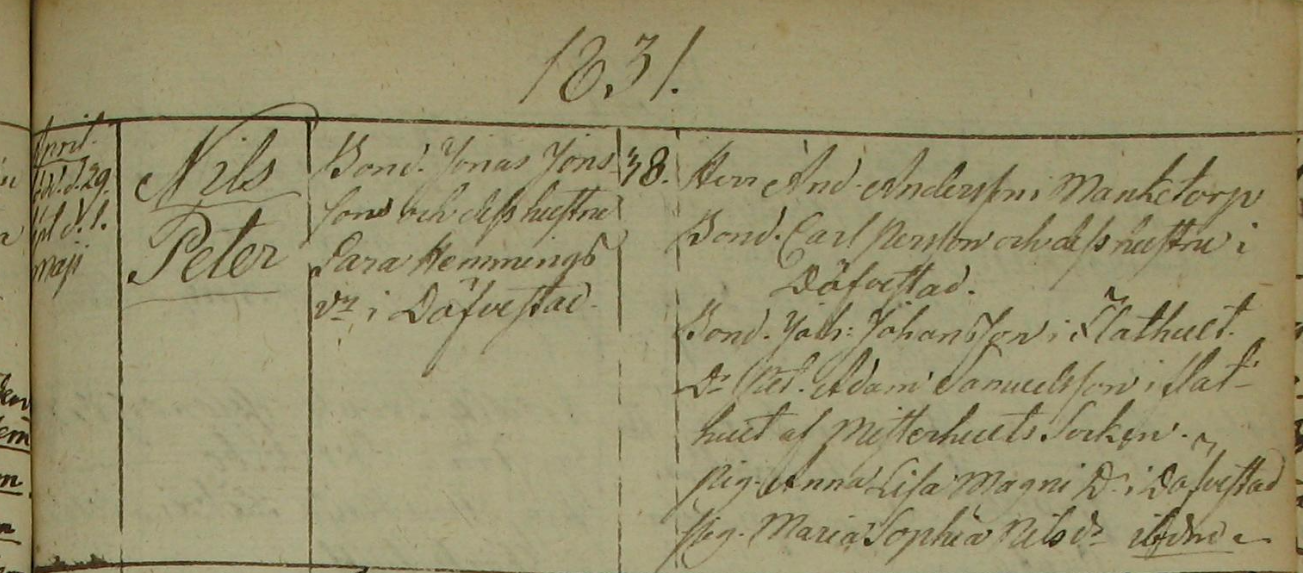 1831.
April
föd. d. 29
dpt d. 1.
Maji
Nils
Peter
Bond. Jonas Jöns
son och dess hustru
Sara Hemmings
dr i Döfvestad.
38.
Herr And. Anderson i Manketorp
Bond. Carl Person och dess hustru i
Döfvestad.
Bond. Joh: Johansson i Flathult.
Dr Adam Samuelsson i Flat-
hult af Misterhults Socken.
Pig. Anna Lisa Magni Dr i Döfvestad
Pig. Maria Sophia Nilsdr ibdm